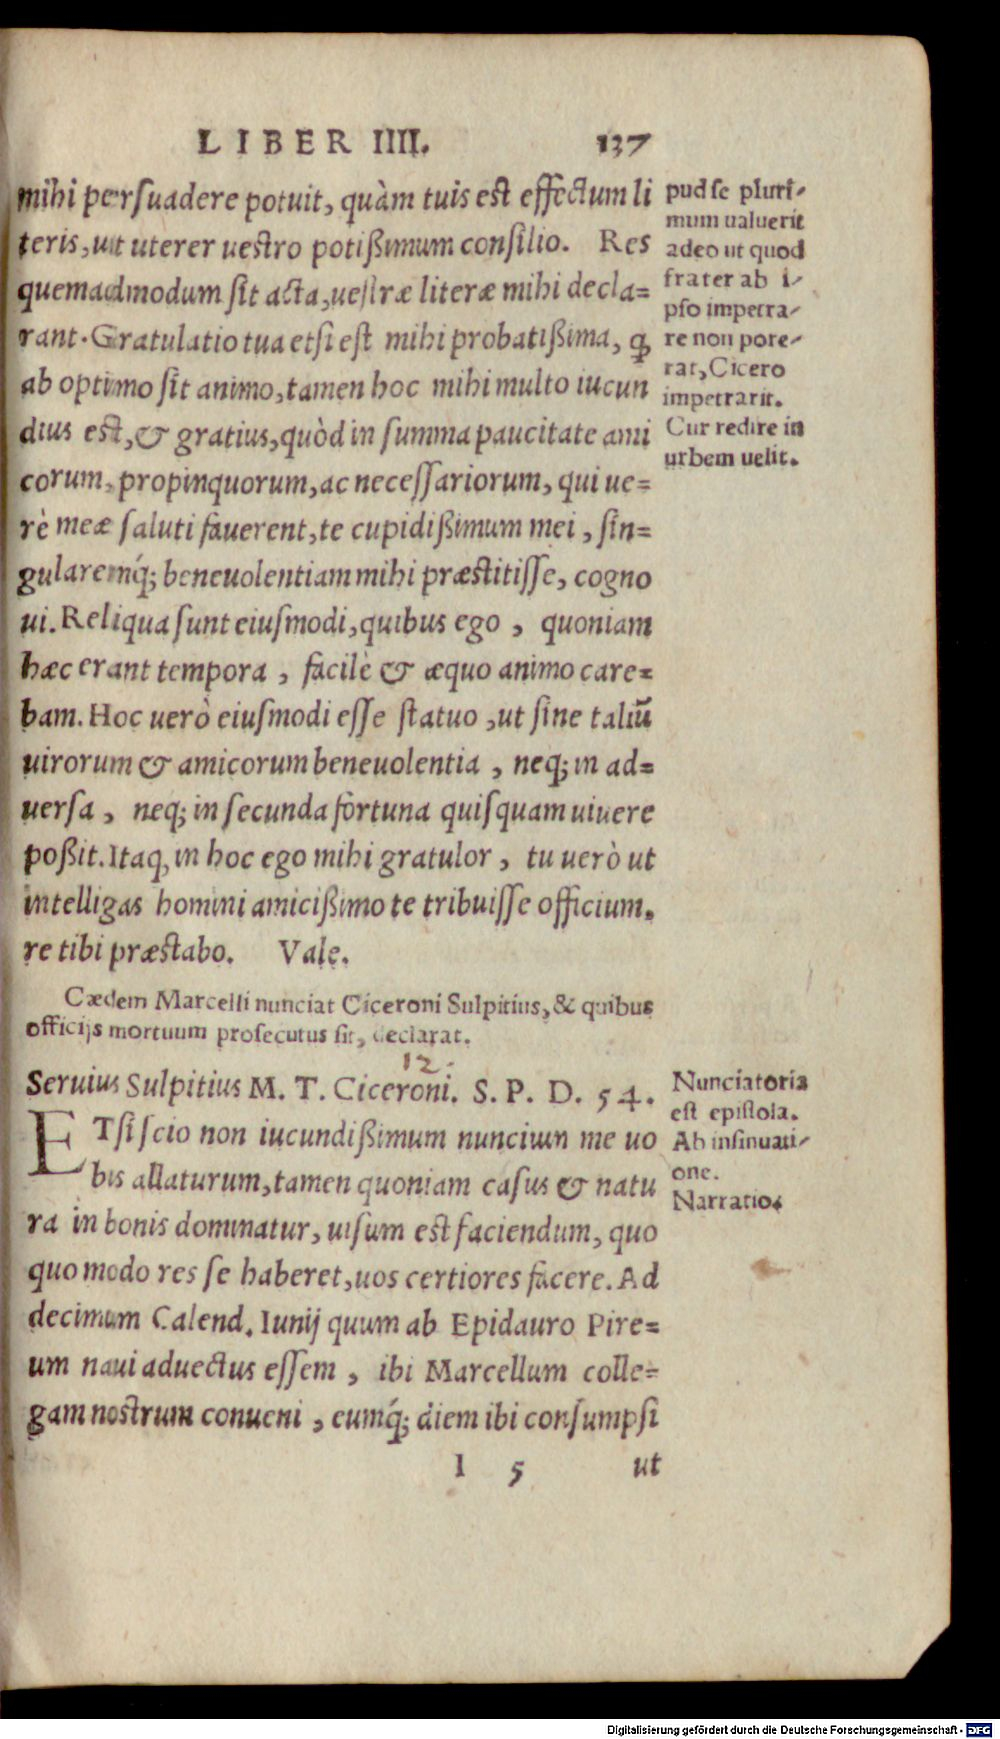 LIBER IIII. 137
mihi persuadere potuit, quàm tuis est effectum li
teris, ut uterer uestro potißimum consilio. Res
quemadmodum sit acta, uestræ literæ mihi decla=
rant. Gratulatio tua etsi est mihi probatißima, ꝙ
ab optimo sit animo, tamen hoc mihi multo iucun
dius est, & gratius, quòd in summa paucitate ami
corum, propinquorum, ac necessariorum, qui ue=
rè meæ saluti fauerent, te cupidißimum mei, sin=
gularemq́; beneuolentiam mihi præstitisse, cogno
ui. Reliqua sunt eiusmodi, quibus ego, quoniam
hæc erant tempora, facilè & æquo animo care=
bam. Hoc uerò eiusmodi esse statuo, ut sine taliũ
uirorum & amicorum beneuolentia, neq; in ad=
uersa, neq; in secunda fortuna quisquam uiuere
poßit. Itaq, in hoc ego mihi gratulor, tu uerò ut
intelligas homini amicißimo te tribuisse officium.
re tibi præstabo. Vale.
pud se pluri-
mum ualuerit
adeo ut quod
frater ab i-
pso impetra-
re non pote-
rat, Cicero
impetrarit.
Cur redire in
urbem uelit.
Cædem Marcelli nunciat Ciceroni Sulpitius, & quibus
officijs mortuum prosecutus sit, declarat.
12.
Seruius Sulpitius M. T. Ciceroni. S. P. D. 54.
ETsi scio non iucundißimum nuncium me uo
bis allaturum, tamen quoniam casus & natu
ra in bonis dominatur, uisum est faciendum, quo
quo modo res se haberet, uos certiores facere. Ad
decimum Calend. Iunij quum ab Epidauro Pire=
um naui aduectus essem, ibi Marcellum colle=
gam nostrum conueni, eumq́; diem ibi consumpsi
Nunciatoria
est epistola.
Ab insinuati-
one.
Narratio.
l 5 ut
Digitalisierung gefördert durch die Deutsche Forschungsgemeinschaft - DFG